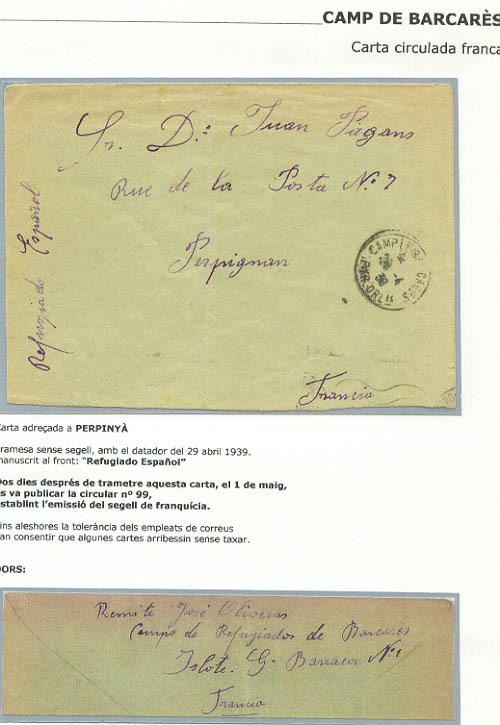 CAMP DE BARCARÈS
Carta circulada franca
Sr. D.: Juan Pagans
Rue de la Posta Nº 7
Perpignan
Francia
Refugiado Español
arta adreçada a PERPINYÀ
ramesa sense segell, amb el datador del 29 abril 1939.
manuscrit al front: "Refugiado Español"
Dos dies després de trametre aquesta carta, el 1 de maig,
es va publicar la circular nº 99,
establint l'emissió del segell de franquícia.
ins aleshores la tolerància dels empleats de correus
an consentir que algunes cartes arribessin sense taxar.
DORS:
Remite José Oliveras
Campo de Refugiados de Barcares
Islote. G. Barracon Nº 1
Francia